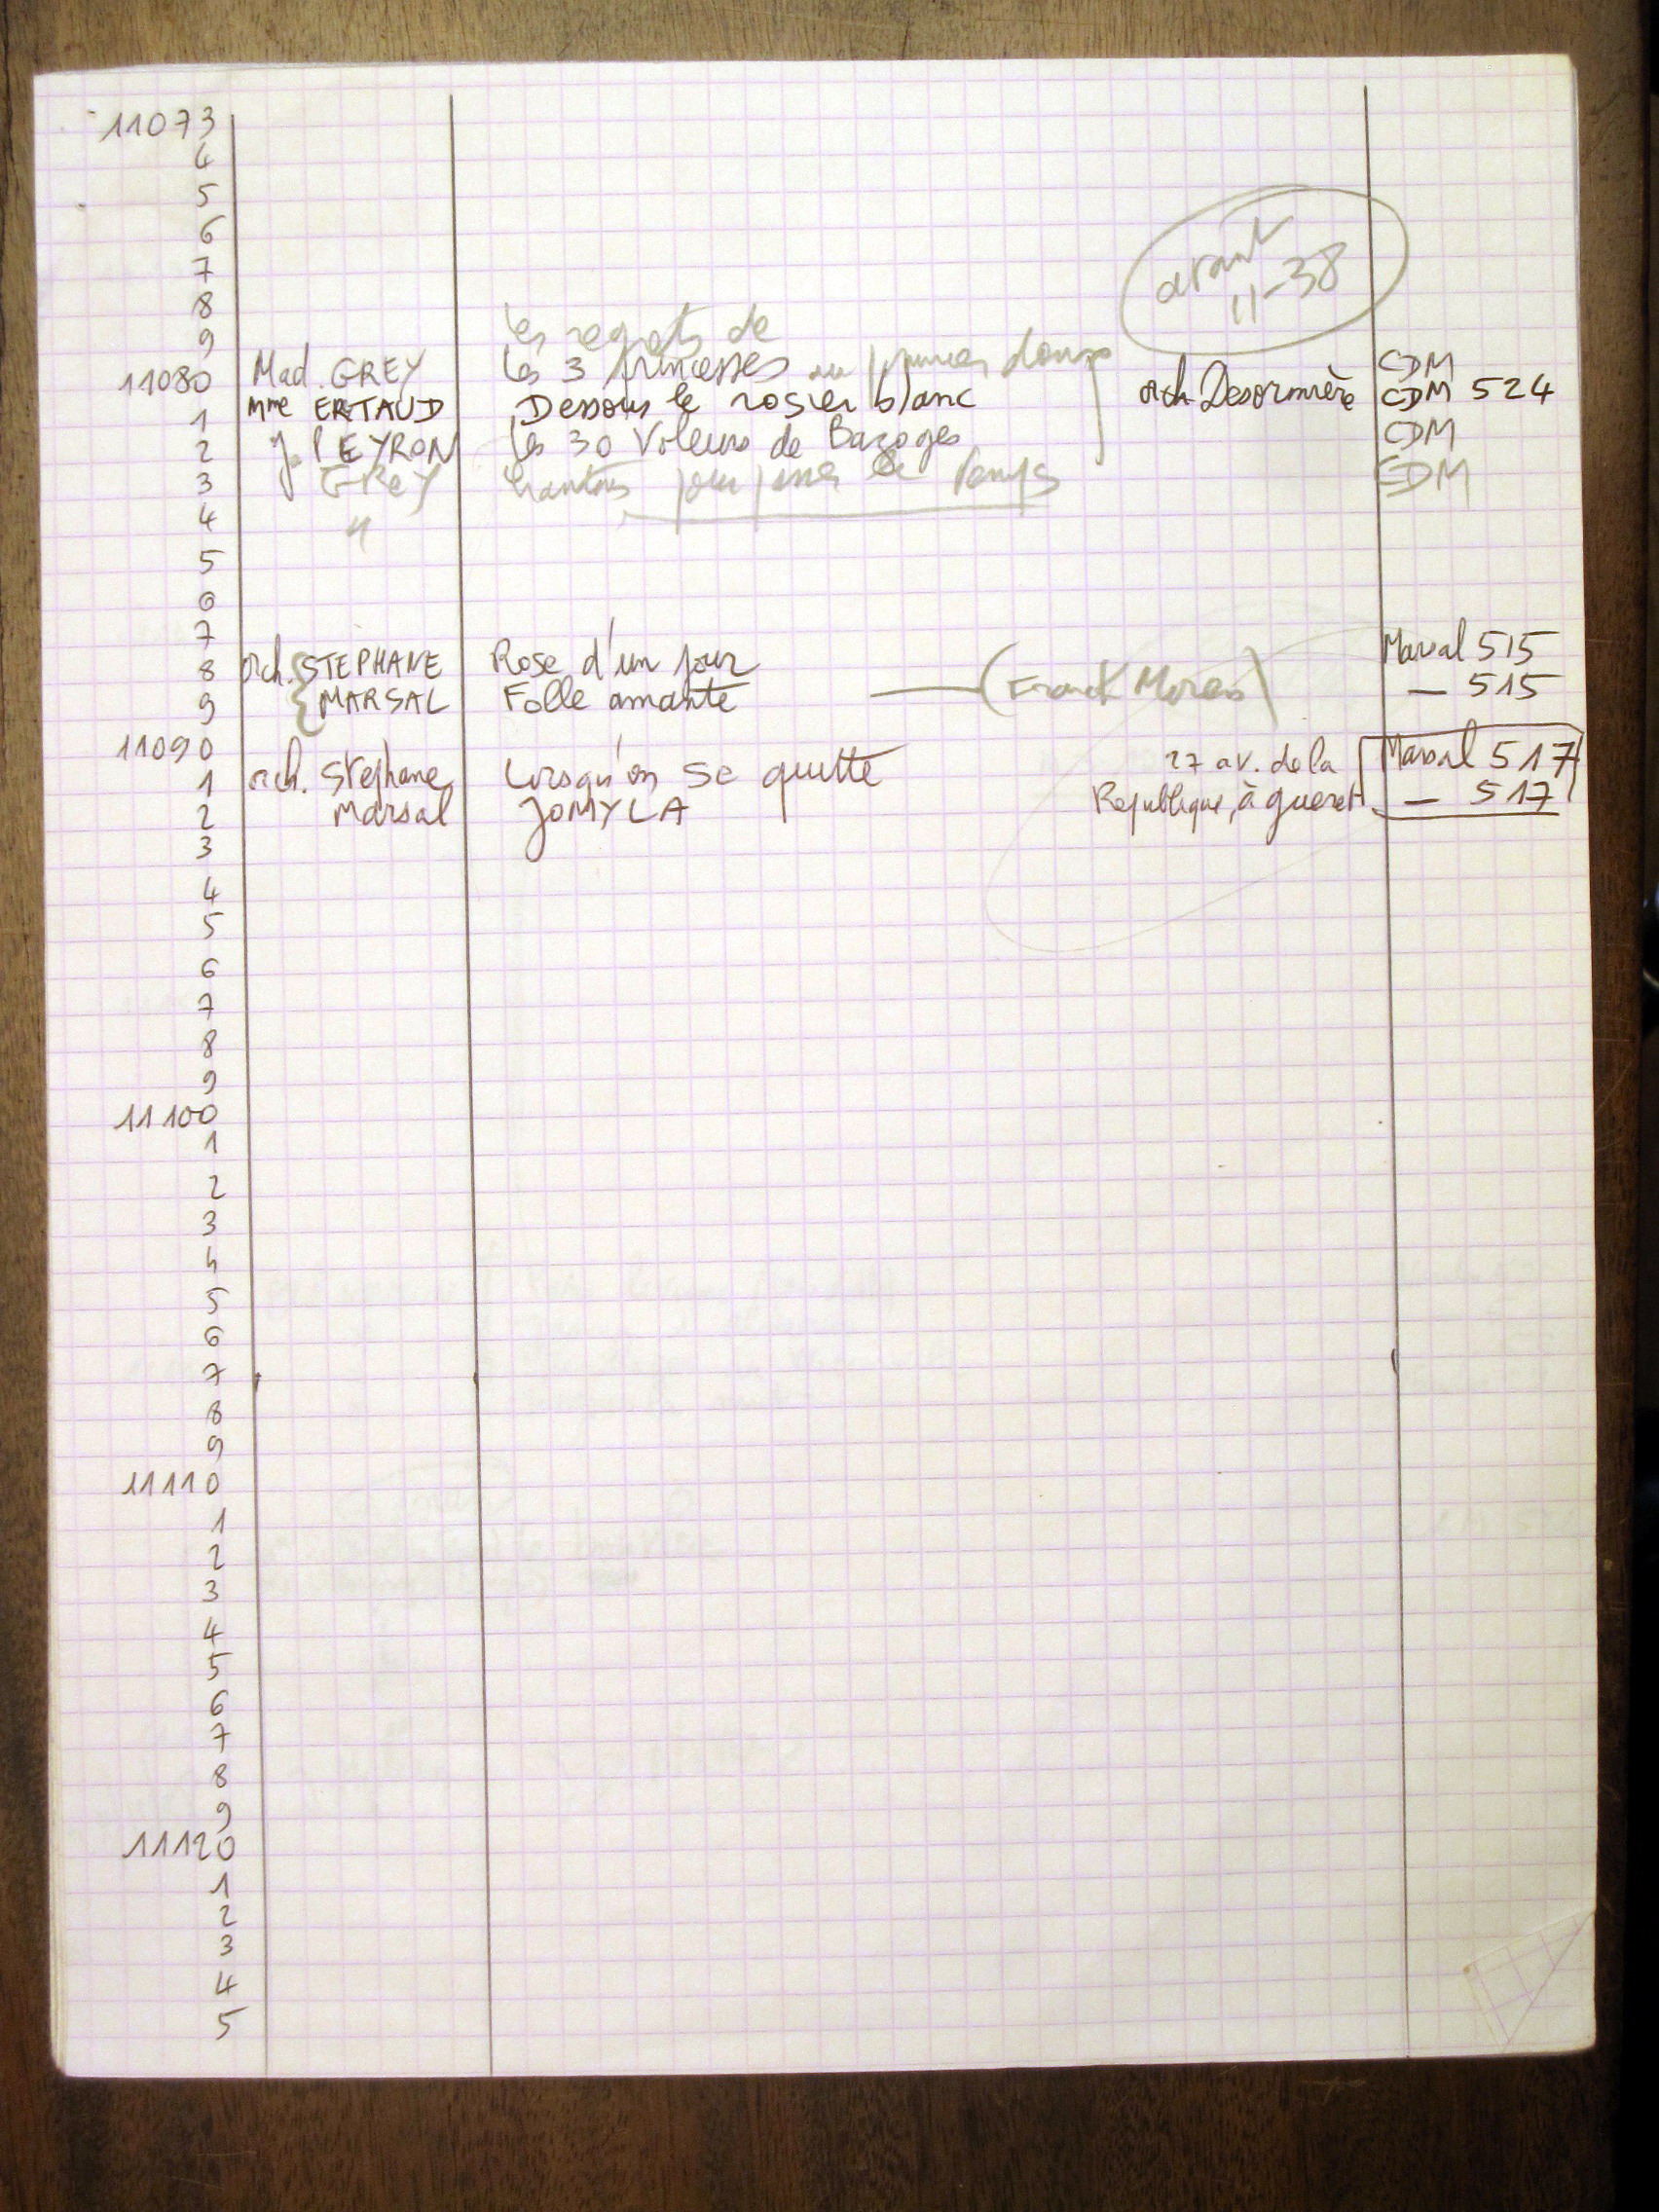 11073
4
5
6
7
8
avant
11-38
9
Les regrets de
11080 Mad. GREY Les 3 princesses au pommier doux CDM
1 Mme ERTAUD Dessous le rosier blanc orch. Desormière CDM 524
2 J. PEYRON Les 30 Voleurs de Bazoges CDM
3 GREY Chantons pour passer le temps CDM
4 "
5
6
7
8 orch. STEPHANE Rose d'un jour Marsal 515
9 MARSAL Folle amante — (Franck) — 515
11090
1 orch. Stephane Lorsqu'on se quitte 27 av. de la Marsal 517
2 Marsal JOMYLA Republique, à gueret — 517
3
4
5
6
7
8
9
11100
1
2
3
4
5
6
7
8
9
11110
1
2
3
4
5
6
7
8
9
11120
1
2
3
4
5